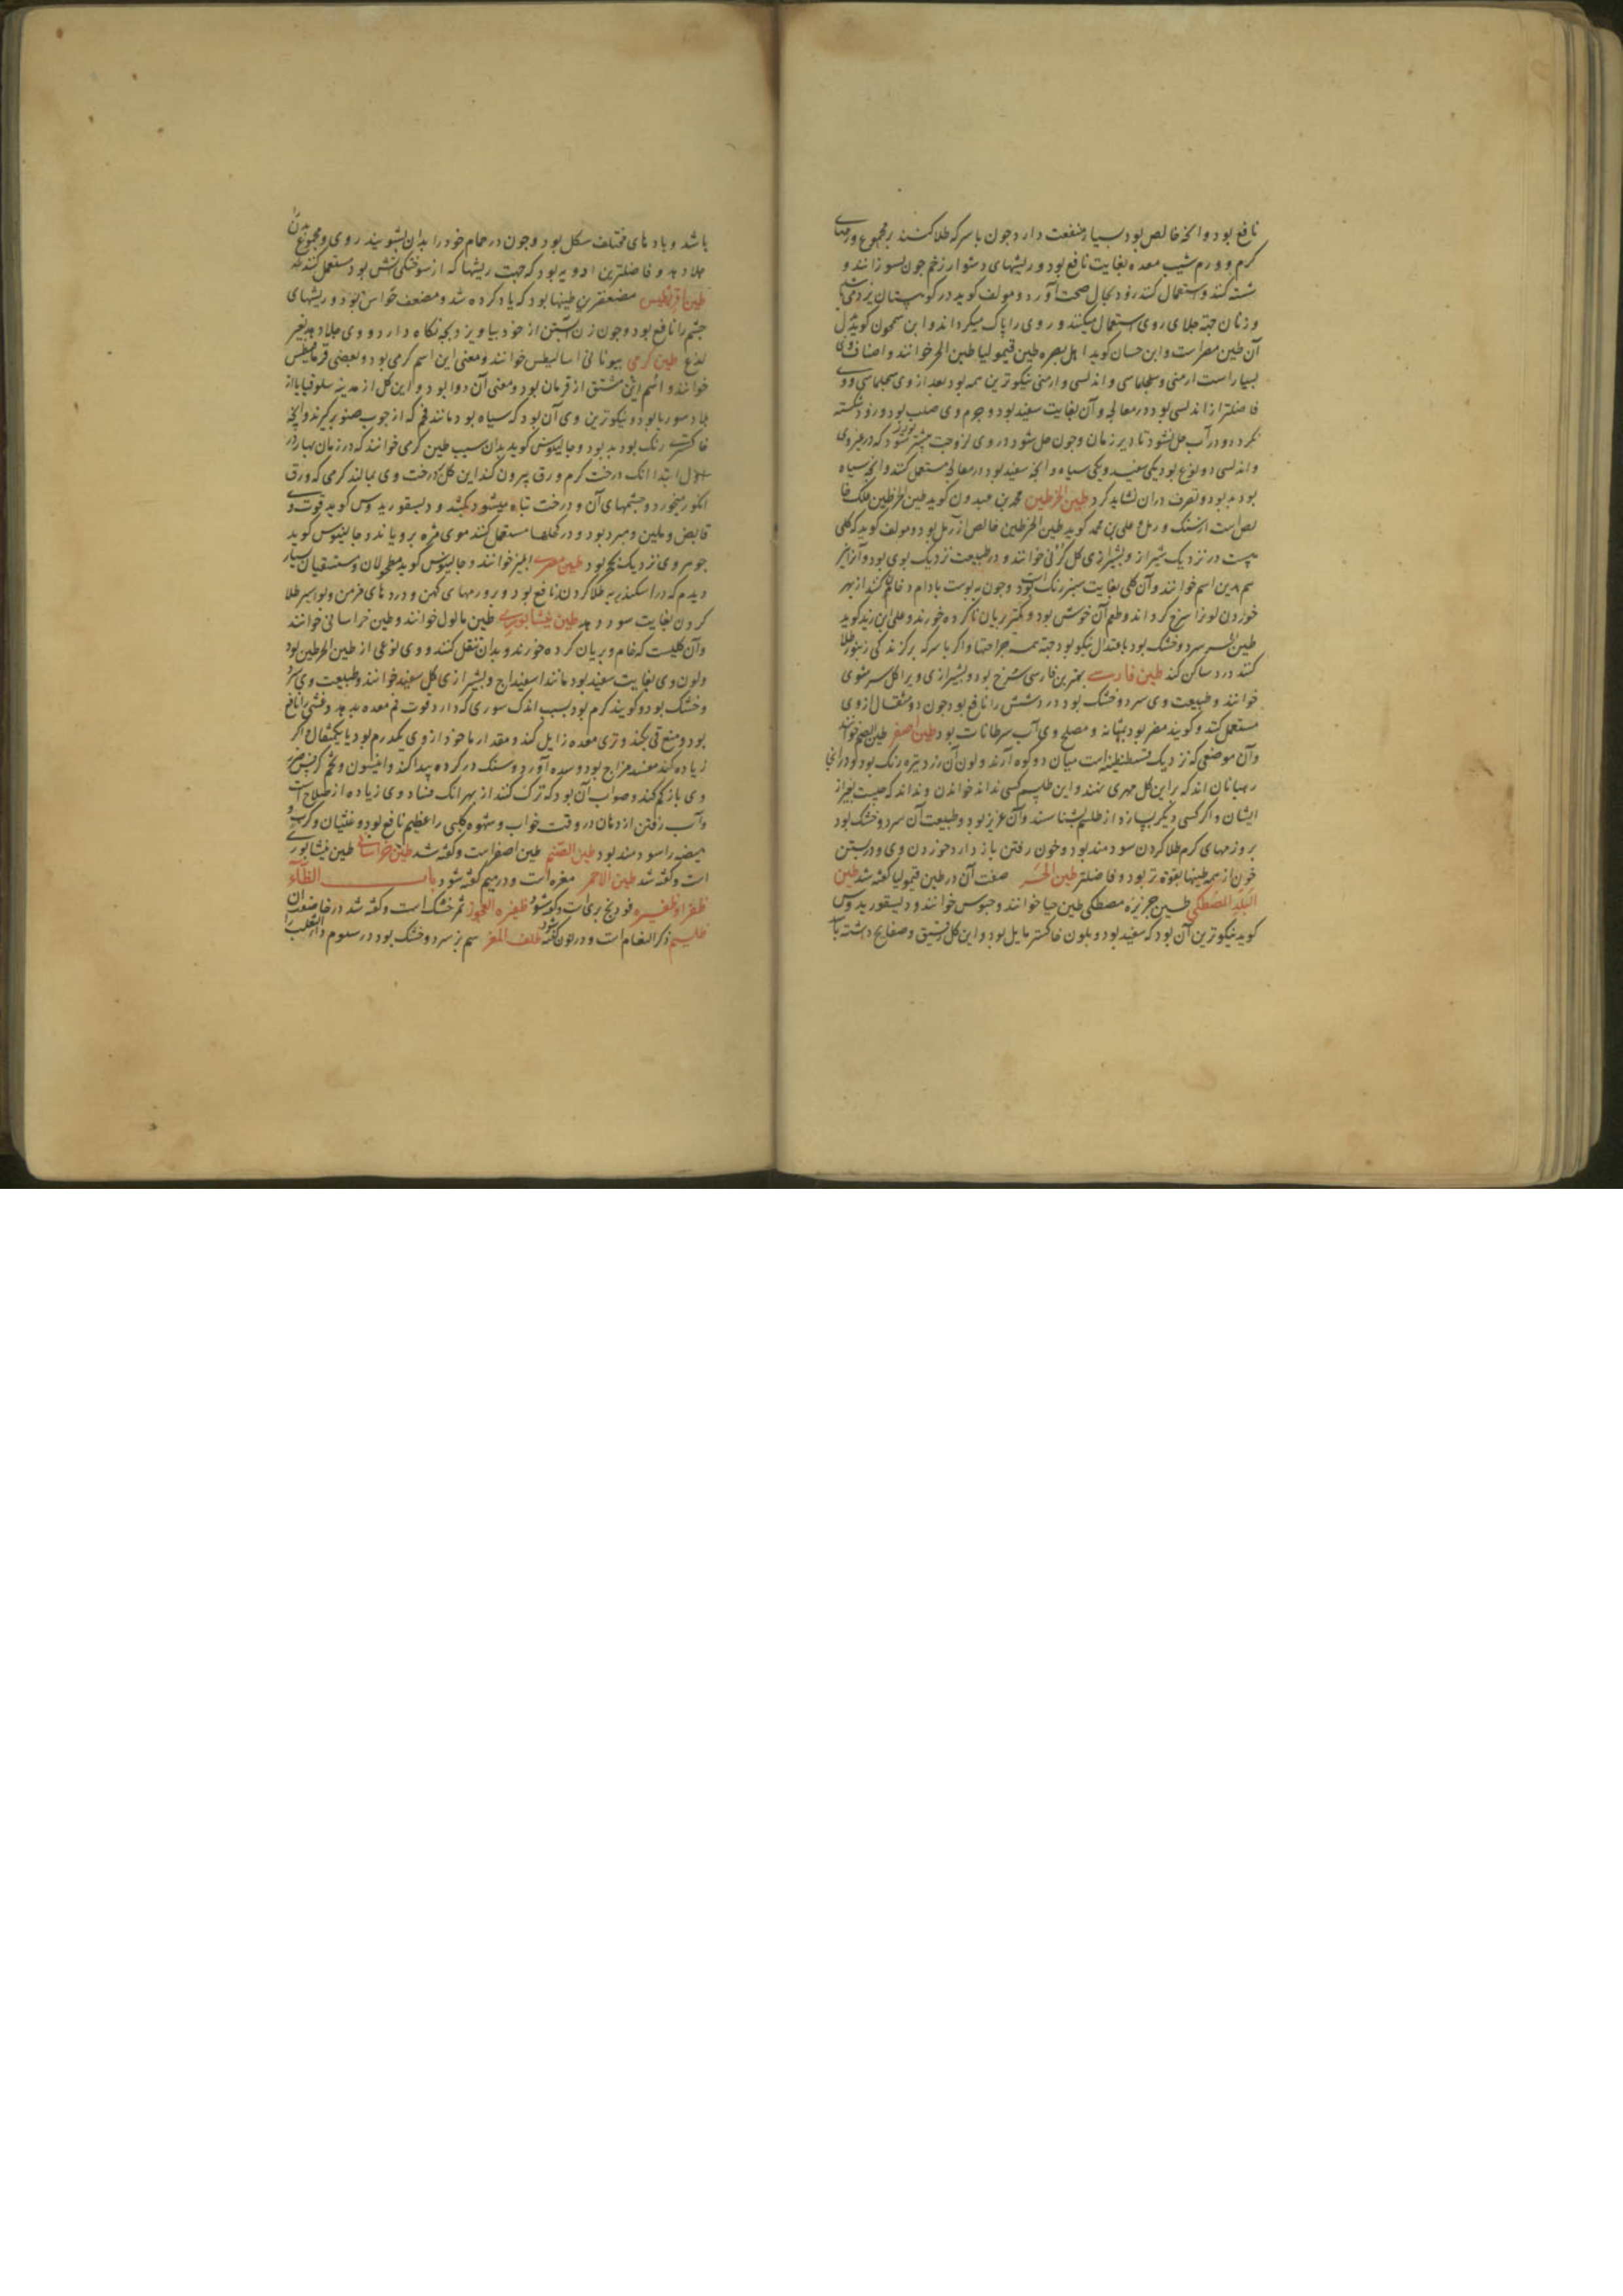 نافع بود و انچه خالص بود بسیار منفعت دارد چون با سرکه طلا کنند بر مجموع ورمهای
کرم و ورم شیب معده بغایت نافع بود و ریشهای دشوار زخم چون بسوزانند و
شسته کنند و استعمال کنند زود بحال صحت آورد و مولف کوید در کوهستان یزد می باشد
و زنان جهة جلای روی استعمال میکنند و روی را پاک میکرداند و ابن سمحون کوید بدل
آن طین مصراست و ابن حسان کوید اهل بصره طین قیمولیا طین الحر خوانند و اصناف وی
بسیار است ارمنی و سجلماسی و اندلسی و ارمنی نیکوترین همه بود بعد از وی سجلماسی و وی
فاضلتر از اندلسی بود در معالجه و آن بغایت سفید بود و جرم وی صلب بود و زود شکسته
نکردد و در آب حل نشود تا دیر زمان و چون حل شود در وی لزوجت بیشتر بود که در غیر وی
و اندلسی دو نوع بود یکی سفید و یکی سیاه و انچه سفید بود در معالجه مستعمل کنند و انچه سیاه
بود بد بود و تصرف دران نشاید کرد طین الخرطین محمد بن عبدون کوید طین الخرطین علک خا
لص است از سنک و رمل و علی بن محمد کوید طین الخرطین خالص از رمل بود و مولف کوید که کلی
هست در نزدیک شیراز و بشیرازی کل خوانند و در طبیعت نزدیک بوی بود و آنرا نیز
هم بدین اسم خوانند و آن کلی بغایت سبز رنک بود و چون به پوست بادام دخان کنند از بهر
خوردن لونرا سرخ کرداند و طعم آن خوش بود و بیشتر بریان ناکرده خورند و علی ابن زید کوید
طین الحر سرد و خشک بود باعتدال نیکو بود جهة همه جراحتها و اکر با سرکه بر کزند کی زنبور طلا
کنند درد ساکن کند طین فارسی بهترین فارسی سرخ بود و بشیرازی ویرا کل سرشوی
خوانند و طبیعت وی سرد و خشک بود درد شش را نافع بود چون دو مثقال از وی
مستعمل کنند و کویند مضر بود بمثانه و مصلح وی آب سرطانات بود طین اصفر طین الصنم خوانند
وآن موضعی که نزدیک قسطنطنیه است میان دو کوه آرند و لون آن زرد تیره رنک بود و در آنجا
رهبانان اند که بر این کل مهری نهند و این طلسم کسی نداند خواندن و نداند که چیست بغیر از
ایشان و اکر کسی دیکر بسازد از طلسم بشناسند وآن عزیز بود و طبیعت آن سرد و خشک بود
بر ورمهای کرم طلا کردن سودمند بود و خون رفتن باز دارد خوردن وی و در بستن
خون از همه طینها بقوة تر بود و فاضلتر طین الحر صفت آن در طین قیمولیا کفته شد طین
البلد المصطکی طین جزیره مصطکی طین حیا خوانند و جبوس خوانند و دیسقوریدوس
کوید نیکوترین آن بود که سفید بود و بلون خاکستر مایل بود و این کل رقیق و صفایح داشته با
باشد و باد های مختلف شکل بود و چون در حمام خود را بدان بشویند روی و مجموع بدن را
جلا دهد و فاضلترین ادویه بود که جهت ریشها که از سوختکی آتش بود مستعمل کنند
طین اقریطیس ضعیفترین طینها بود که یاد کرده شد و مضعف حواس بود و ریشهای
چشم را نافع بود و چون زن آبستن از خود بیاویزد بچه نکاه دارد و وی جلا دهد بغیر
لذع طین کرمی بیونانی اسالیطس خوانند و معنی این اسم کرمی بود و بعضی قرمانیطس
خوانند و اسم این مشتق از قرمان بود و معنی آن دوا بود و این کل از مدینه سلوقیا باز
بلاد سوریا بود و نیکوترین وی آن بود که سیاه بود مانند فحم که از چوب صنوبر کیرند و انچه
خاکستری رنک بود بد بود و جالینوس کوید بدان سبب طین کرمی خوانند که در زمان بهار در
اول ابتدا انک درخت کرم ورق بیرون کند این کل بر درخت وی بمالند کرمی که ورق
انکور میخورد و چشمهای آن و درخت تباه میشود بکشد و دیسقوریدوس کوید قوت وی
قابض و ملین و مبرد بود و در کحلها مستعمل کنند موی مژه برویاند و جالینوس کوید
جوهر وی نزدیک بود طین مصری ابلیز خوانند و جالینوس کوید مطحولان و مستسقیان بسیار
دیدم که در اسکندریه طلا کردند نافع بود و ورمهای کهن و دردهای مزمن و بواسیر طلا
کردن بغایت سود دهد طین نیشابوری طین ماکول خوانند و طین خراسانی خوانند
وآن کلیست که خام و بریان کرده خورند و بدان تنقل کنند و وی نوعی از طین الحرطین بود
و لون وی بغایت سفید بود مانند اسفیداج و بشیرازی کل سفید خوانند و طبیعت وی سرد
و خشک بود و کویند کرم بود بسبب اندک شوری که دارد قوت فم معده بدهد و غشی را نافع
بود و منع قی بکند و تری معده زایل کند و مقدار ماخوذ از وی یکدرم بود یا یکمثقال و اکر
زیاده کند مفسد مزاج بود و سده آورد و سنک در کرده پیدا کند و انیسون و تخم کرفس ضرر
وی باز کم کند و صواب آن بود که ترک کنند از بهر انک فساد وی زیاده از صلاح است
وآب رفتن از دهان در وقت خواب و شهوه کلبی را عظیم نافع بود و غثیان و کرب و
هیضه را سودمند بود طین الصنم طین اصفر است و کفته شد طین خراسانی طین نیشابوری
است و کفته شد طین الاحمر مغره است و در میم کفته شود باب الظاء
ظفرا و ظفیره فودنج بری است و کفته شود ظفیره العجوز ثمر خشک است و کفته شد در خا ضعف ان
ظلیم ذکر النعام است و در نون کفته شود ظلف المعز سم بز سرد و خشک بود در سیوم داء الثعلب را